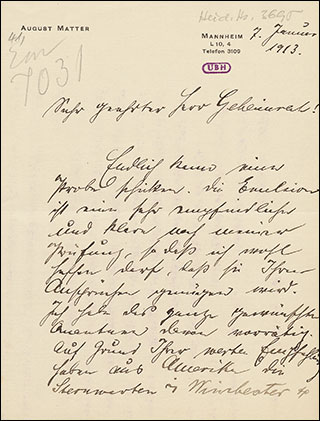 Heid. Hs. 3695
AUGUST MATTER
MANNHEIM
L 10, 4
Telefon 3109
7. Januar
1913.
7031
UBH
Sehr geehrter Herr Geheimrat!
Endlich kann eine
Probe schicken. Die Emulsion
ist eine sehr empfindliche
und klare nach meiner
Prüfung, so daß ich wohl
hoffen darf, daß sie Ihren
Ansprüchen genügen wird.
Ich habe das ganze gewünschte
Quantum davon vorrätig.
Auf Grund Ihrer werten Empfehlung
haben aus Amerika die
Sternwarten Winchester